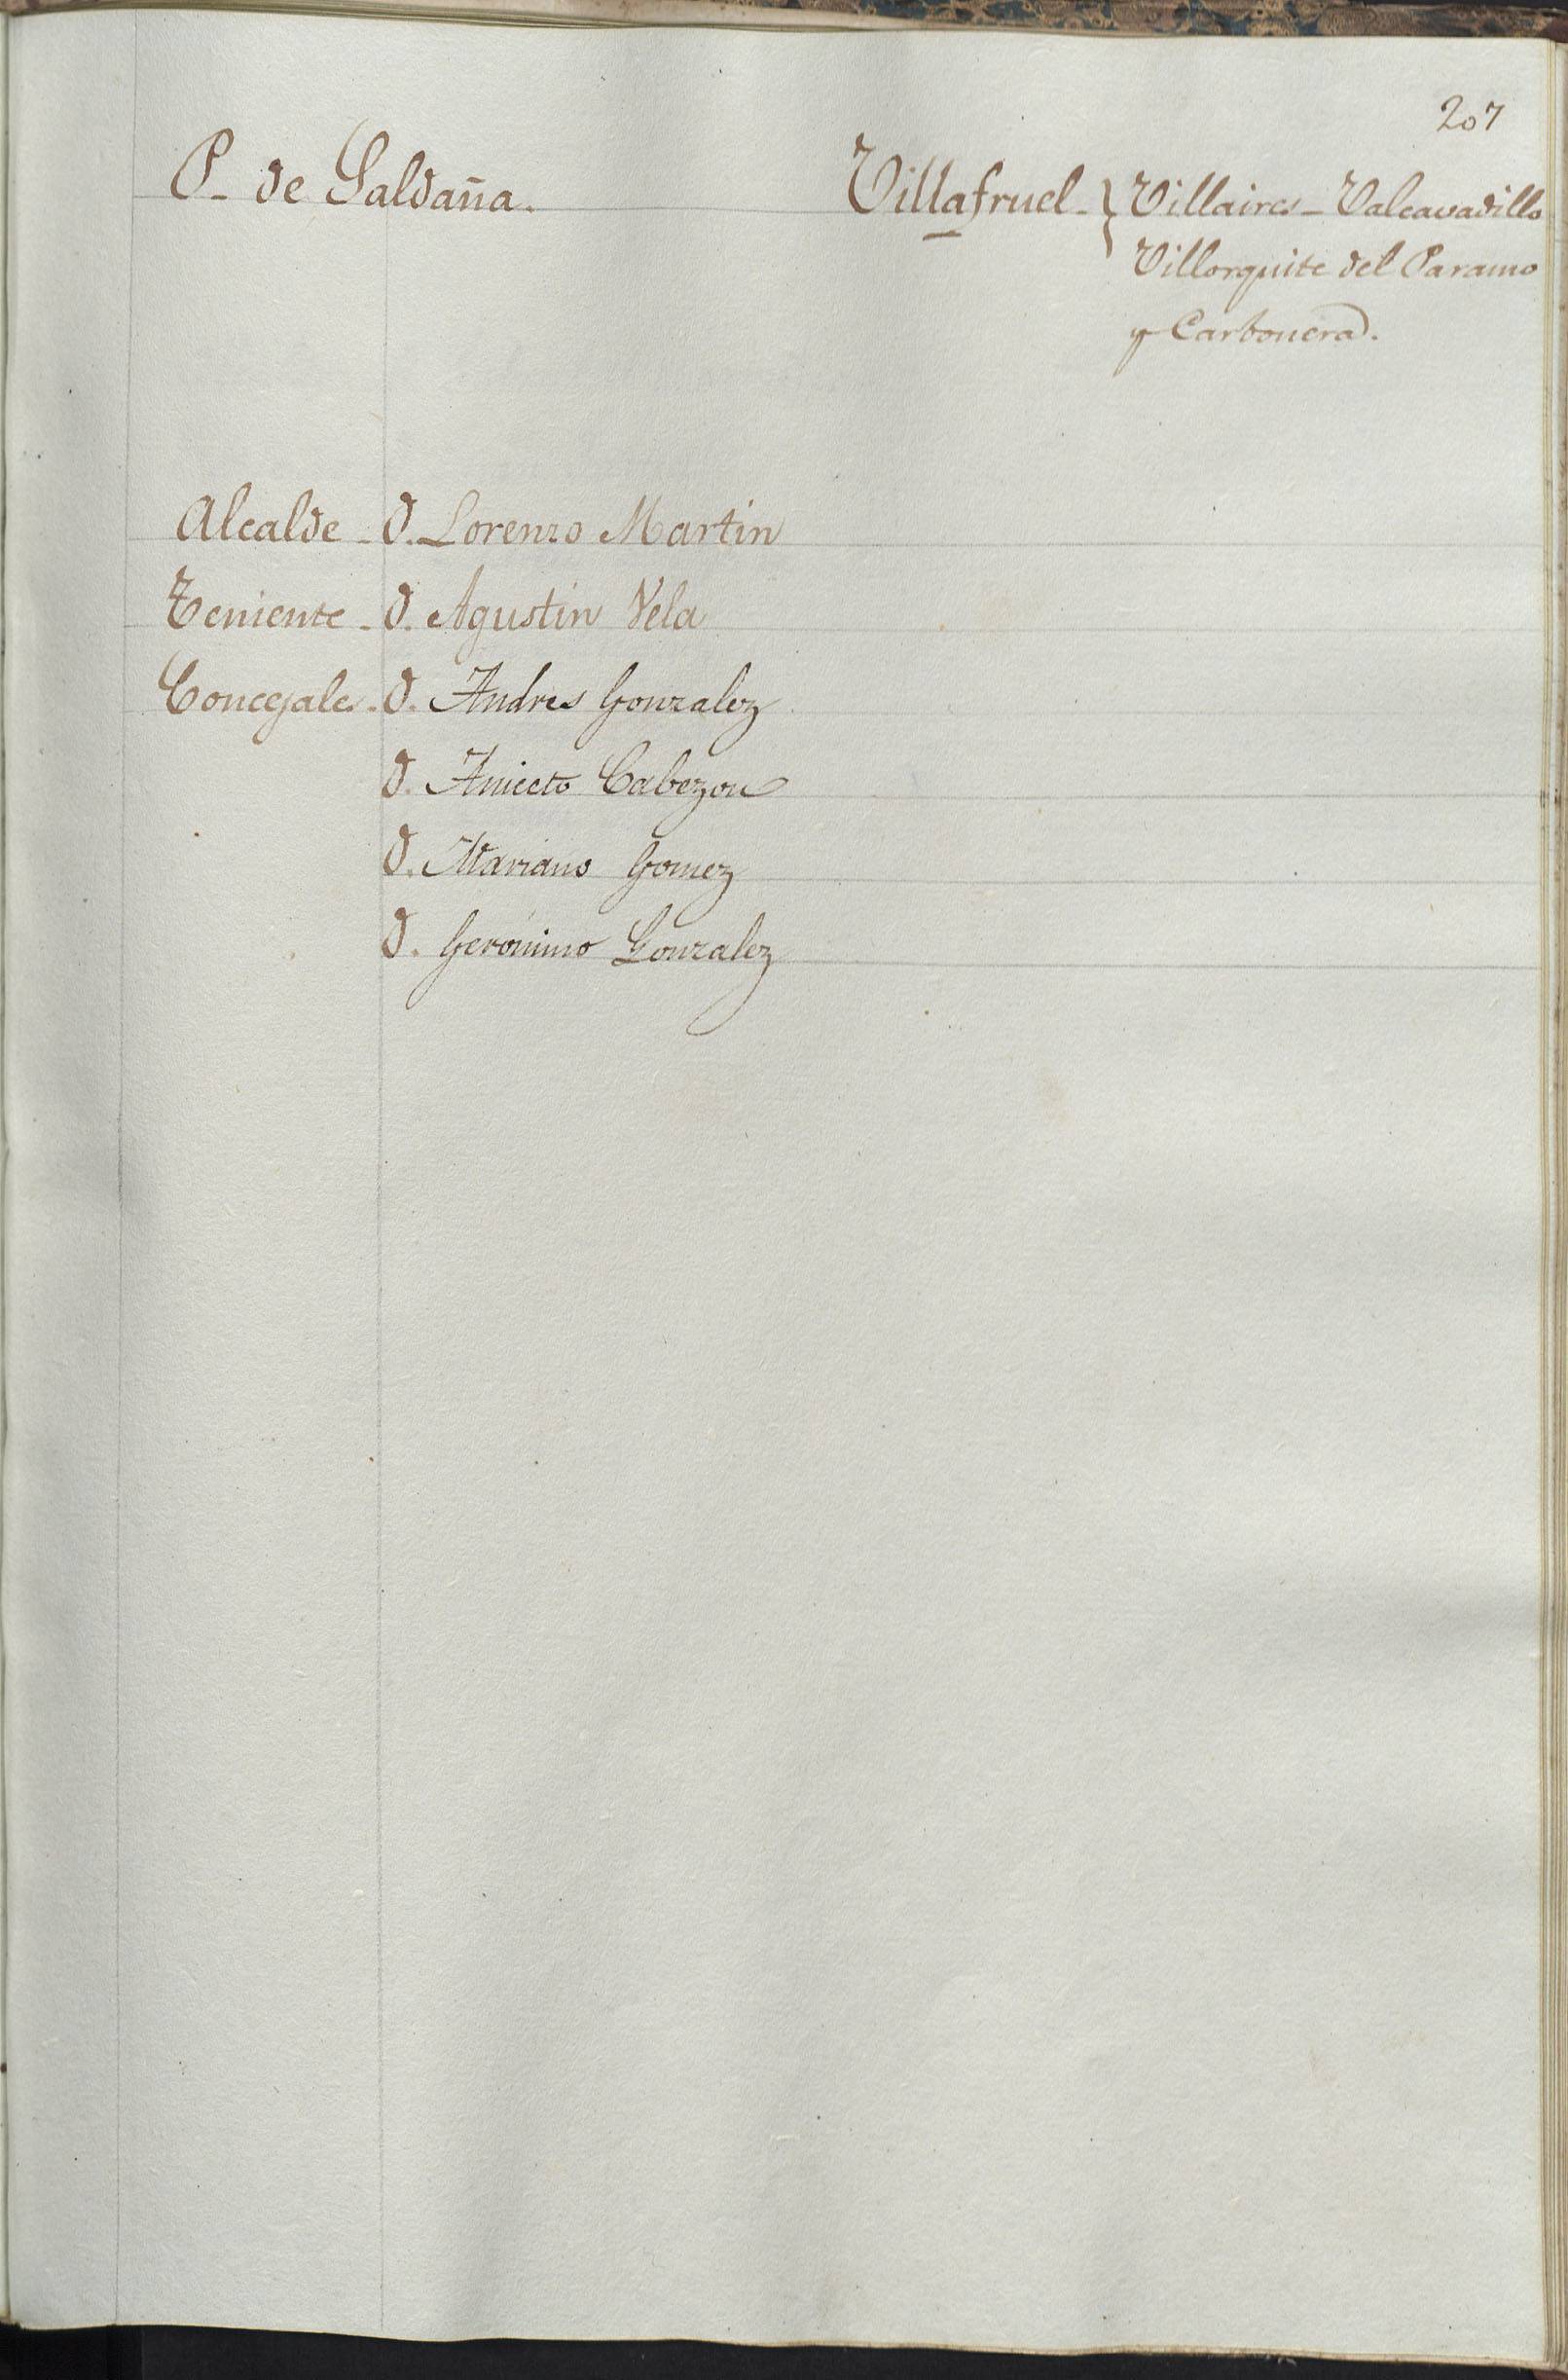 207
P. de Saldaña. Villafruel - } Villaires - Valcavadillo
Villorquite del Paramo
y Carbonera.
Alcalde - D. Lorenzo Martin
Teniente - D. Agustin Vela
Concejales - D. Andres Gonzalez
D. Aniceto Cabezon
D. Mariano Gomez
D. Gerónimo Gonzalez